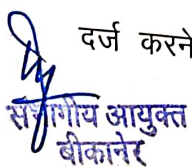 दर्ज करने
संभागीय आयुक्त
बीकानेर